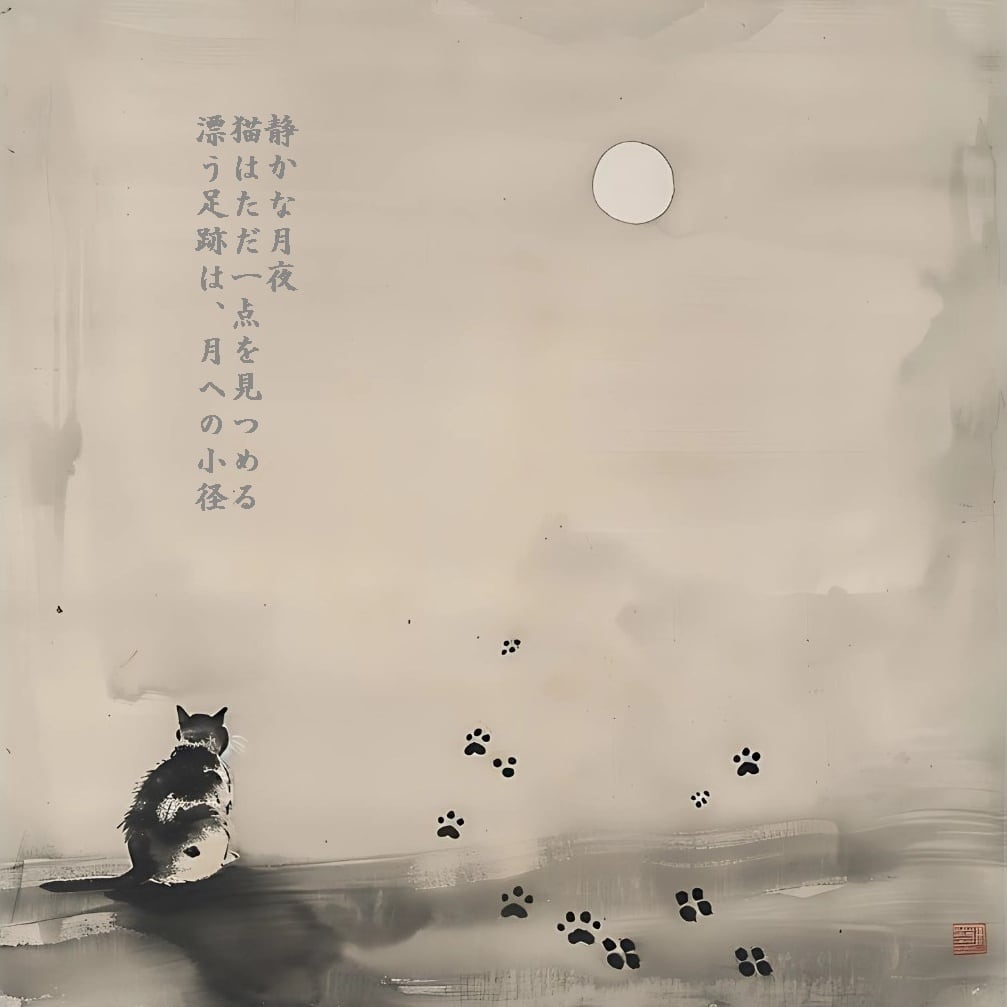 静かな月夜
猫はただ一点を見つめる
漂う足跡は、月への小径